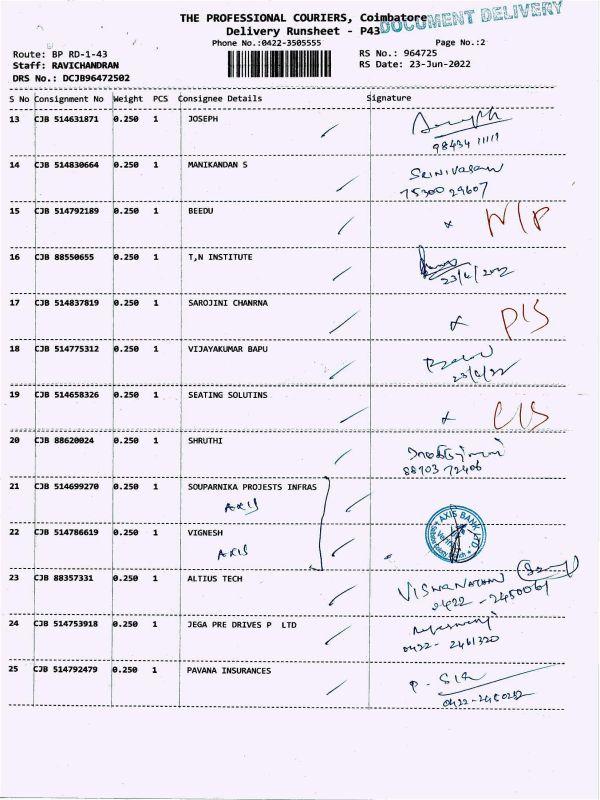 THE PROFESSIONAL COURIERS, Coimbatore
DOCUMENT DELIVERY
Delivery Runsheet - P43
Phone No.:0422-3505555 Page No.:2
Route: BP RD-1-43 RS No.: 964725
Staff: RAVICHANDRAN RS Date: 23-Jun-2022
DRS No.: DCJB96472502
S No Consignment No Weight PCS Consignee Details Signature
13 CJB 514631871 0.250 1 JOSEPH
98434 11111
14 CJB 514830664 0.250 1 MANIKANDAN S SRINIVASAN
75300 29607
15 CJB 514792189 0.250 1 BEEDU x N/P
16 CJB 88550655 0.250 1 T,N INSTITUTE
23/6/2022
17 CJB 514837819 0.250 1 SAROJINI CHANRNA x P/S
18 CJB 514775312 0.250 1 VIJAYAKUMAR BAPU
23/6/22
19 CJB 514658326 0.250 1 SEATING SOLUTINS x
20 CJB 88620024 0.250 1 SHRUTHI
88703 72406
21 CJB 514699270 0.250 1 SOUPARNIKA PROJESTS INFRAS
AXIS
AXIS BANK LTD
22 CJB 514786619 0.250 1 VIGNESH
AXIS
23 CJB 88357331 0.250 1 ALTIUS TECH VISWANATHAN
0422 - 2450061
24 CJB 514753918 0.250 1 JEGA PRE DRIVES P LTD
0422- 2461320
25 CJB 514792479 0.250 1 PAVANA INSURANCES P. Siva
0422-2450252